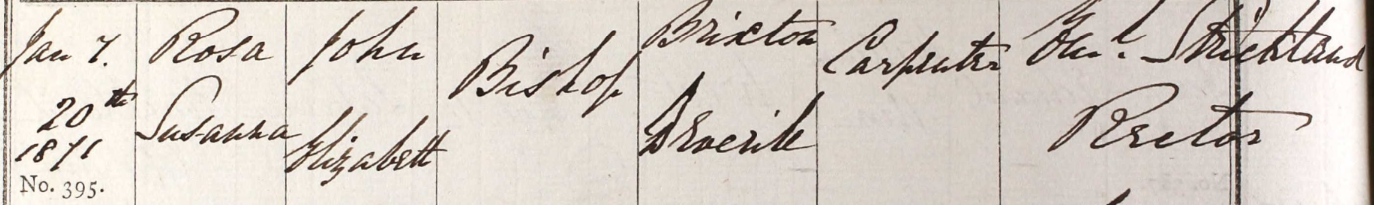 Jan 7.
20th
1871
No. 395.
Rosa
Susanna
John
Elizabeth
Bishop
Brixton
Deverile
Carpenter
Strickland
Rector